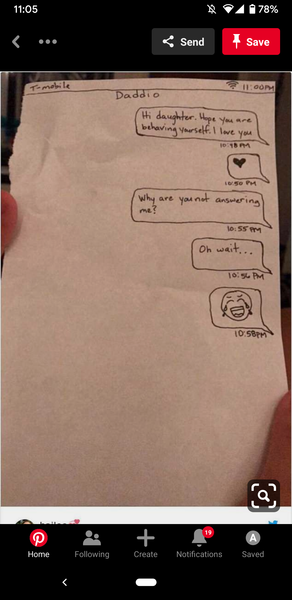 11:05
78%
Send
Save
T-mobile
11:00PM
Daddio
Hi daughter. Hope you are
behaving yourself. I love you
10:48 PM
10:50 PM
Why are you not answering
me?
10:55 PM
Oh wait...
10:56 PM
10:58PM
19
Home
Following
Create
Notifications
A
Saved